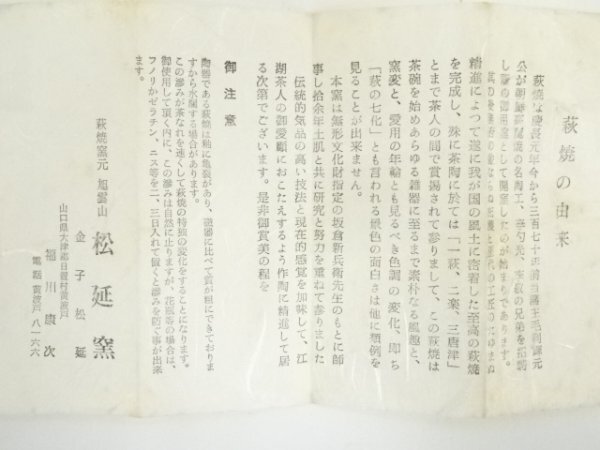 萩焼の由来
萩焼は慶長元年今から三百七十年前旧藩主毛利輝元
公が朝鮮
の名陶工、李勺光、李敬の兄弟を招聘
し藩の御用窯として開窯したのが始まりであります。
精進によつて遂に我が国の風土に密着した至高の萩焼
を完成し、殊に茶陶に於ては「一萩、二楽、三唐津」
とまで茶人の間で賞揚されて参りまして、この萩焼は
茶碗を始めあらゆる雑器に至るまで素朴なる風趣と、
窯変と、愛用の年輪とも見るべき色調の変化、即ち
「萩の七化」とも言われる景色の面白さは他に類例を
見ることが出来ません。
本窯は無形文化財指定の坂倉新兵衛先生のもとに師
事し拾余年土肌と共に研究と努力を重ねて参りました
伝統的気品の高い技法と現在的感覚を加味して、江
湖茶人の御愛顧におこたえするよう作陶に精進して居
る次第でございます。是非御賞美の程を
御注意
陶器である萩焼は釉に亀裂があり、磁器に比べて質が粗にできておりま
すから水漏する場合があります。
この滲みが茶なれを速くして萩焼の特質の変化をすることになります。
御使用して頂く内に、この滲みは自然に止りますが、花瓶等の場合は、
フノリかゼラチン、ニス等を二、三日入れて置くと滲みを防ぐ事が出来
ます。
萩焼窯元 旭雲山 松延窯
金子松延
福川康次
山口県大津郡日置村黄波戸
電話 黄波戸 八一六六